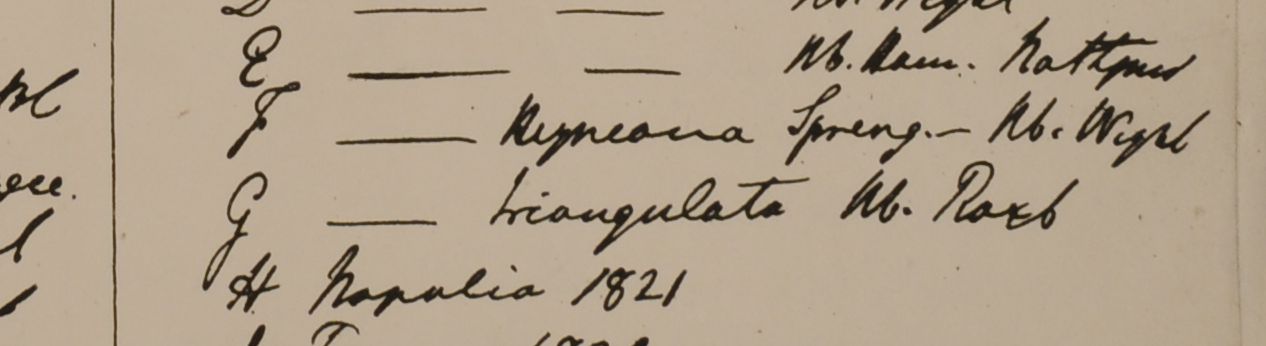 D — — Hb. Wight
E — — Hb. Ham. Nathpur
F — Heyneana Spreng. — Hb. Wight
G — triangulata Hb. Roxb
H Napalia 1821